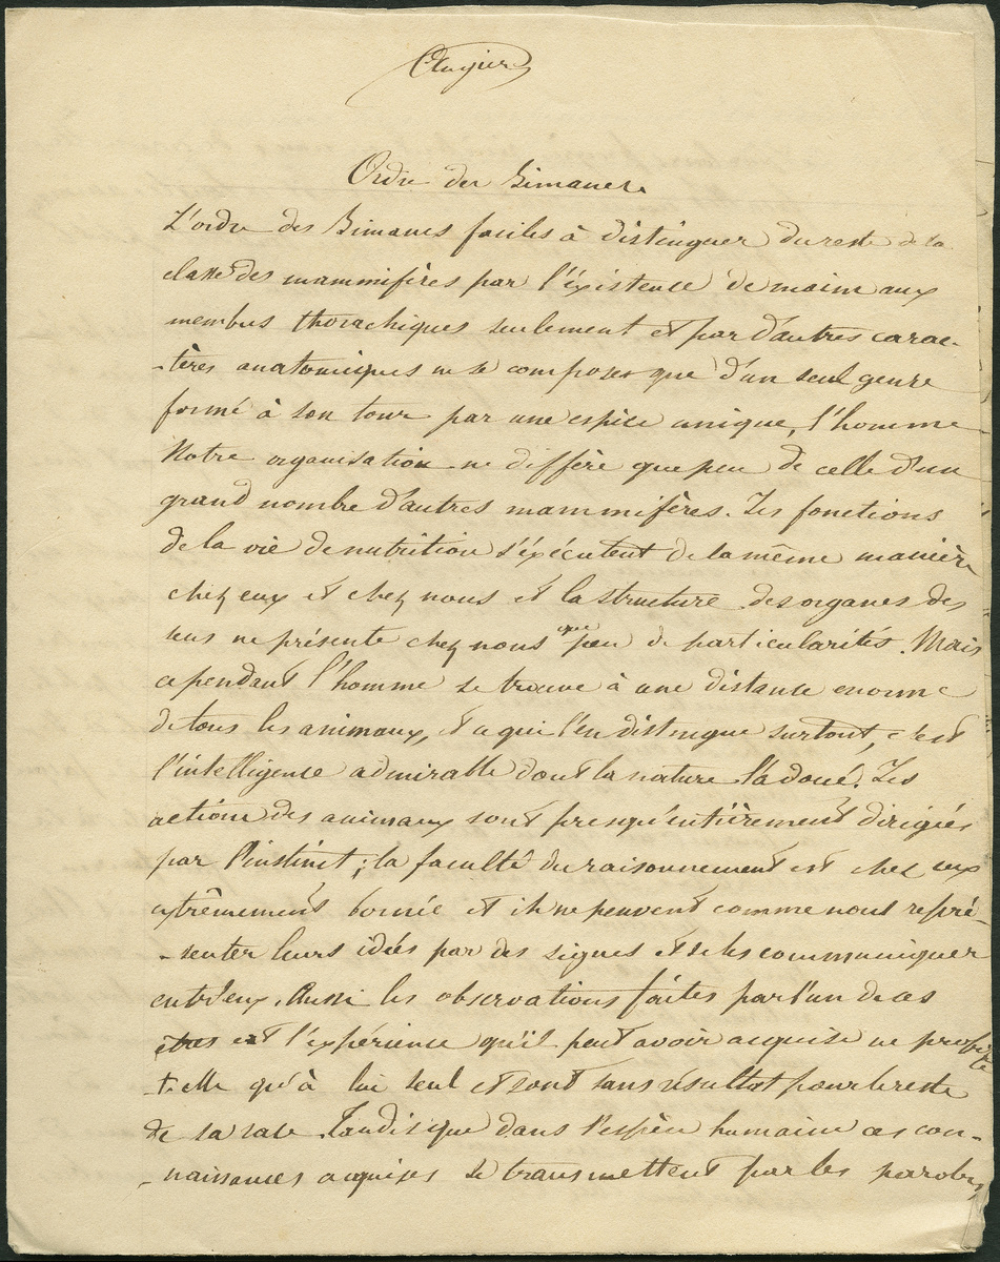 Augier
Ordre des Bimanes.
L'ordre des Bimanes faciles à distinguer du reste de la
classe des mammifères par l'éxistence de mains aux
membres thorachiques seulement et par d'autres carac-
-tères anatomiques ne se compose que d'un seul genre
formé à son tour par une espèce unique, l'homme
Notre organisation ne diffère que peu de celle d'un
grand nombre d'autres mammifères. Les fonctions
de la vie de nutrition s'éxécutent de la même manière
chez eux et chez nous et la structure des organes des
sens ne présente chez nous que peu de particularités. Mais
cependant l'homme se trouve à une distance enorme
de tous les animaux, et ce qui l'en distingue surtout, c'est
l'intelligence admirable dont la nature l'a doué. Les
actions des animaux sont presqu'entièrement dirigées
par l'instinct; la faculté du raisonnement est chez eux
extrêmement bornée et ils ne peuvent comme nous repré-
-senter leurs idées par des signes et se les communiquer
entr'eux. Aussi les observations faites par l'un de ces
êtres et l'expérience qu'il peut avoir acquise ne profite
t-elle qu'à lui seul et sont sans résultat pour le reste
de sa race. Tandis que dans l'espèce humaine ces con-
-naissances acquises se transmettent par les paroles,